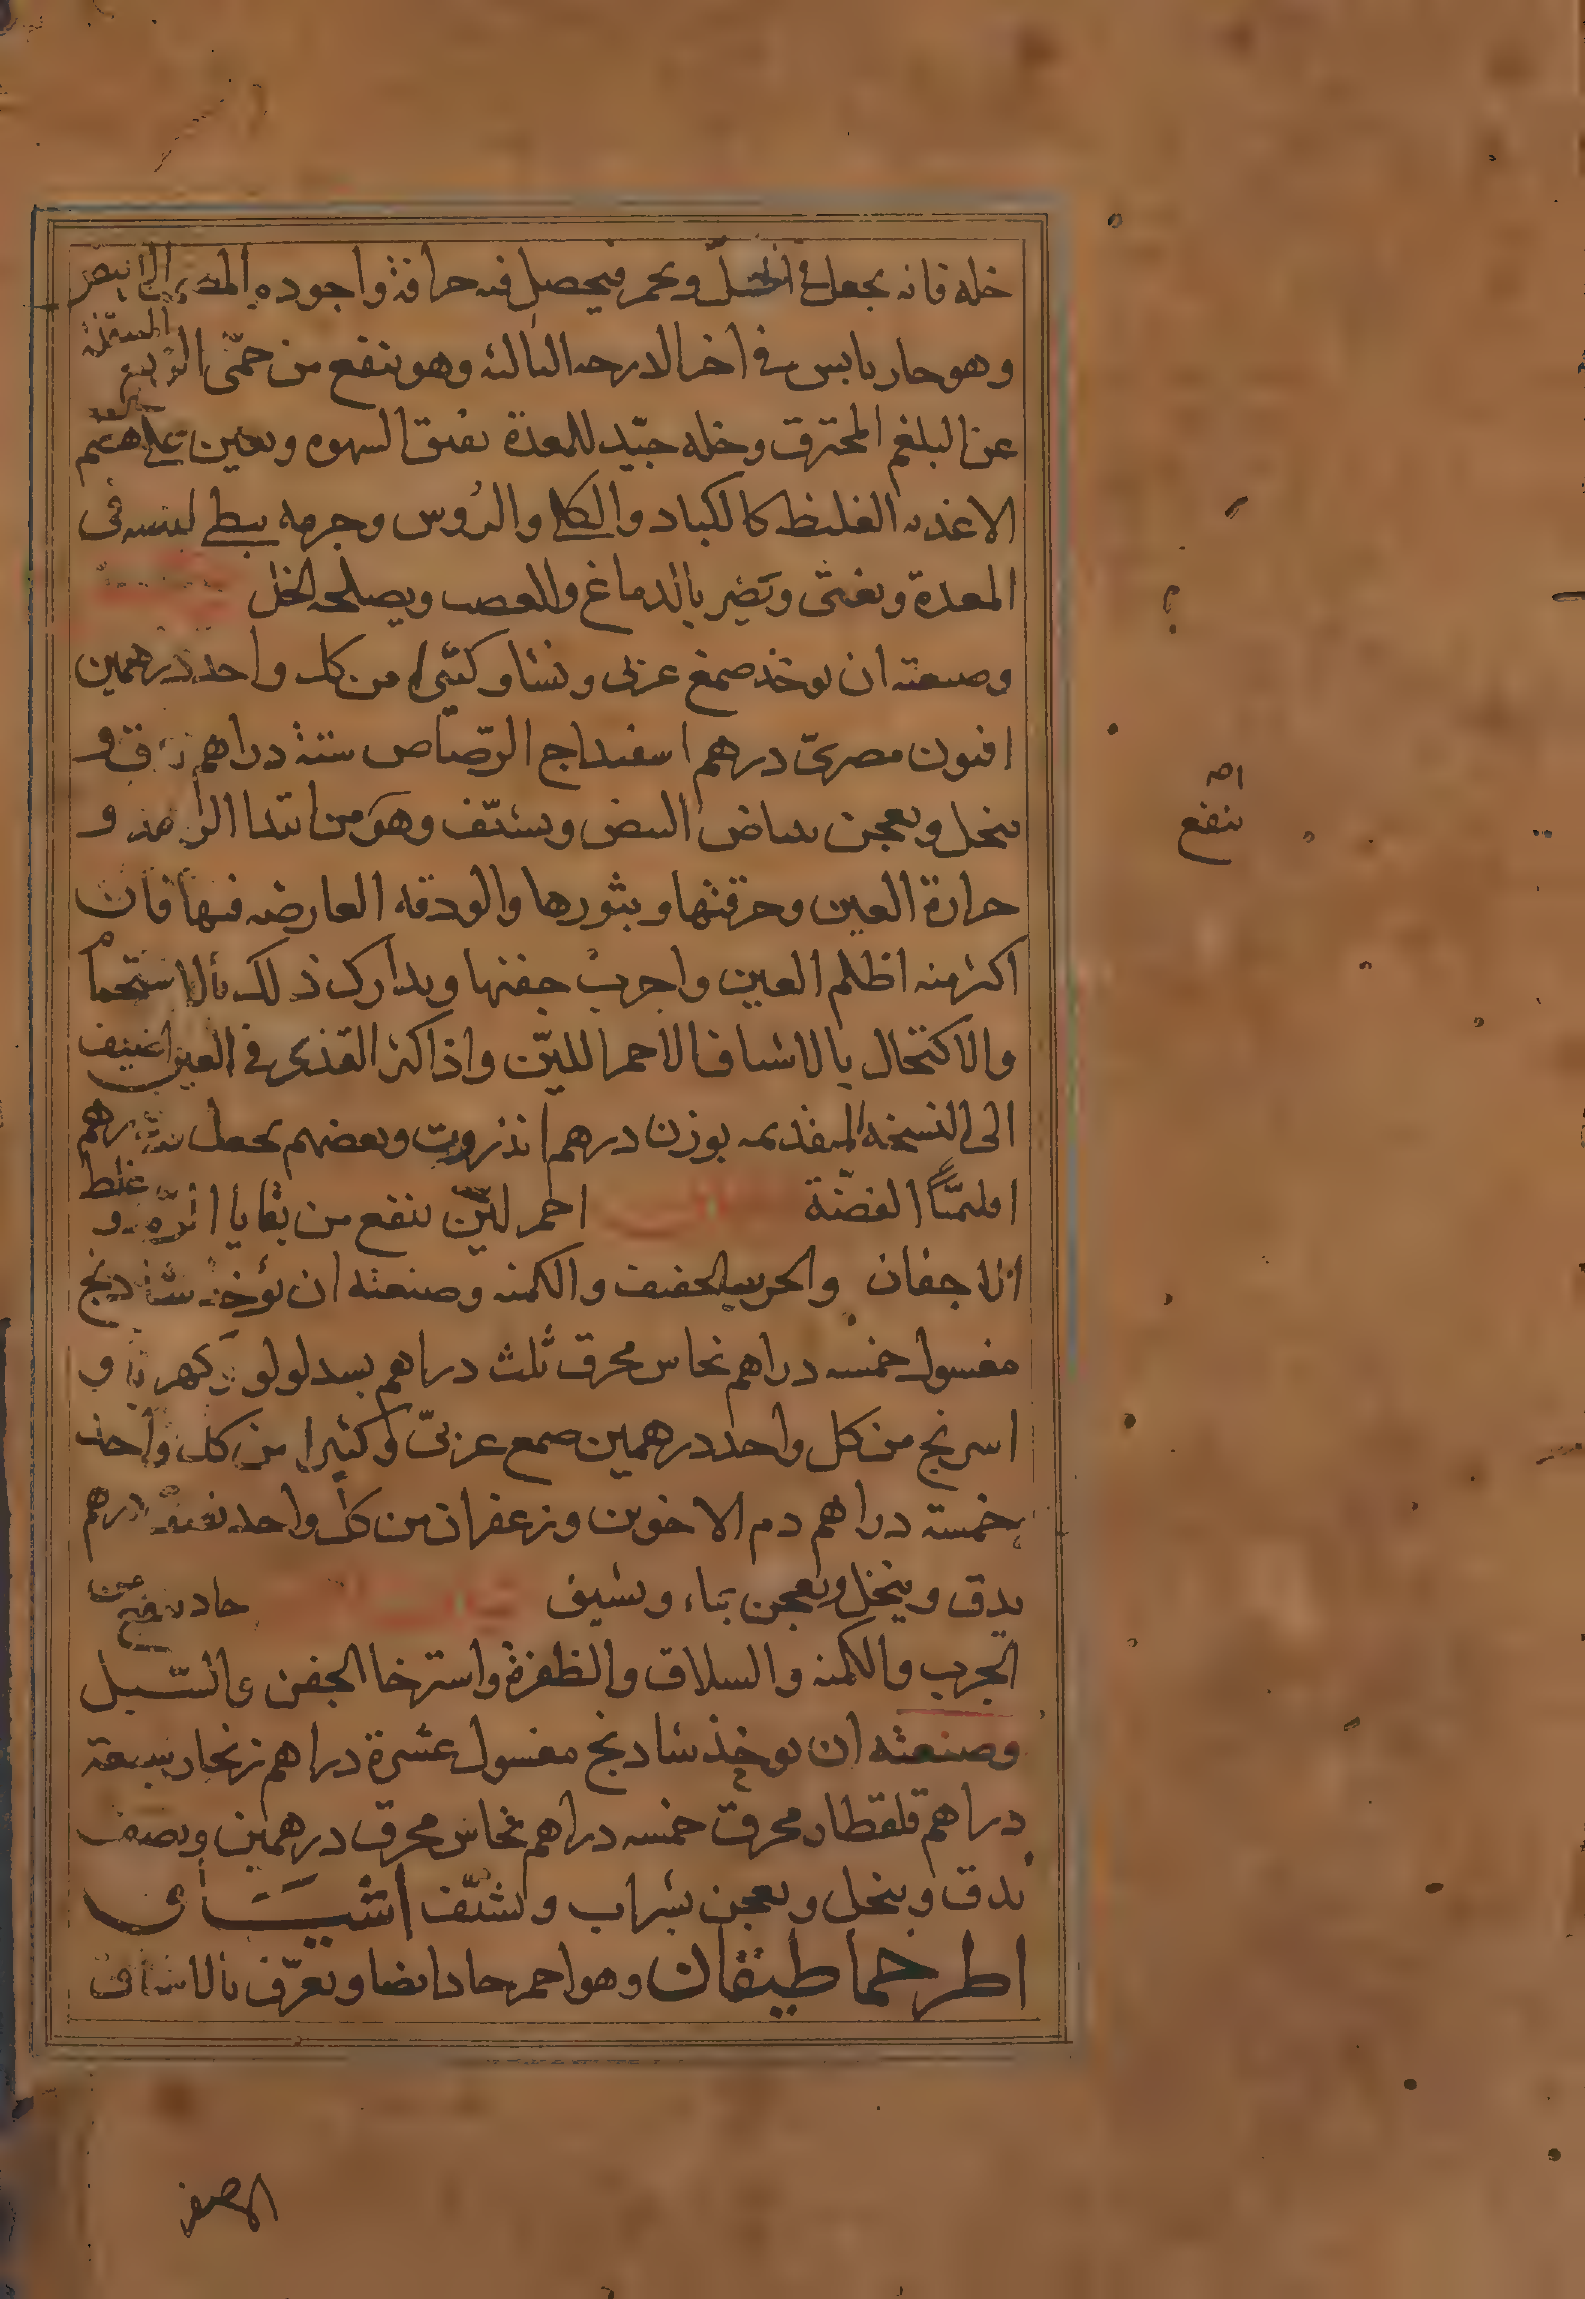 خله فانه يجعل في الخل ويحمر فيحصل فيه حرافة واجوده الابيض
وهو حار يابس في اخر الدرجه الثالثه وهو ينفع من حمّى الربع المتولدة
عن البلغم المحترق وخله جيّد للمعدة يفتق الشهوه ويعين على هضم
الاغذيه الغليظه كالكباد والكلى والرؤس وجرمه بطى لبثه فى
المعدة ويغثى ويَضر بالدماغ والعصب ويصلحه الخل
وصنعته ان يوخذ صمغ عربى ونشا وكثيرا من كل واحد درهمين
افيون مصرىّ درهم اسفيداج الرّصاص ستة دراهم يدق و
ينخل ويعجن ببياض البيض ويشيّف وهو من ابتدا الرمد و
حرارة العين وحرقتها وبثورها والودقه العارضه فيها فان
اكثر منه اظلم العين واجرب جفنها ويدارك ذلك بالاستحمام
والاكتحال بالاشياف الاحمر الليّن واذا كثر القذى في العين اضيف
الى النسخه المقدمه بوزن درهم انزروت وبعضهم يجعل درهم
اقليميّا الفضّة احمر ليّن ينفع من بقايا الرمد و غلظ
الاجفان والجرب الخفيف والكمنه وصنعته ان يؤخذ شاذنج
مغسول خمسه دراهم نحاس محرق ثلث دراهم بسد لولو كهربا و
اسرنج من كل واحد درهمين صمغ عربىّ وكثيرا من كل واحد
خمسة دراهم دم الاخوين وزعفران من كل واحد نصف درهم
يدق وينخل ويعجن بماء ويشيف حاد ينفع من
الجرب والكمنه والسلاق والظفرة واسترخا الجفن والسّبل
وصنعته ان يوخذ شادنج مغسول عشرة دراهم زنجار سبعة
دراهم قلقطار محرق خمسه دراهم نحاس محرق درهمين ونصف
يدق وينخل ويعجن بشراب ويشيّف اشياف
اطرحماطيقان وهو احمر حاد ايضا ويعرّف بالاشياف
اصه
ينفع